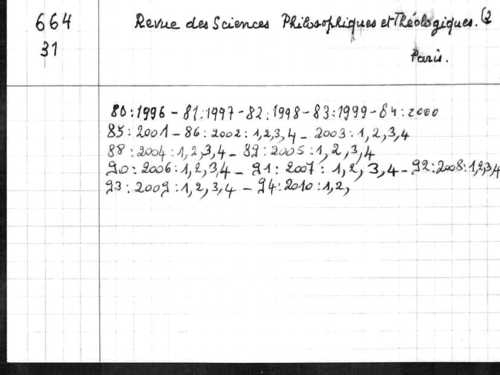 664 Revue des Sciences Philosophiques et Théologiques. (2
31 Paris.
80:1996 - 81:1997 - 82:1998 - 83:1999 - 84:2000
85:2001 - 86:2002:1,2,3,4 - 2003:1,2,3,4
88:2004:1,2,3,4 - 89:2005:1,2,3,4
90:2006:1,2,3,4 - 91:2007:1,2,3,4 - 92:2008:1,2,3,4
93:2009:1,2,3,4 - 94:2010:1,2,